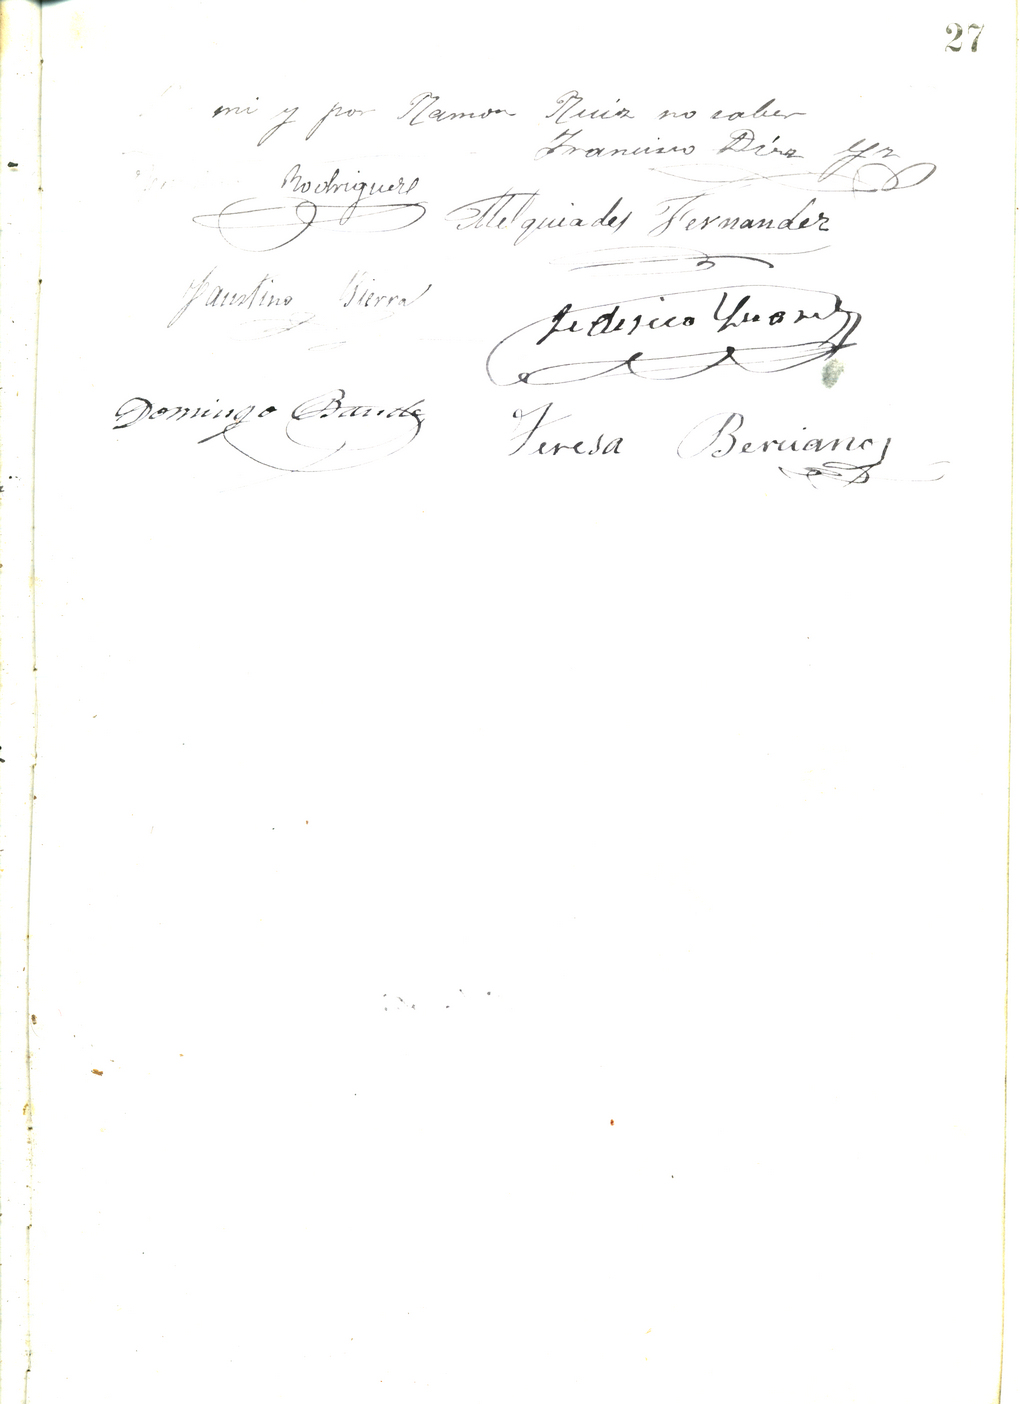 27
mi y por Ramon Ruiz no saber
Francisco Díez
Rodriguez
Melquiades Fernandez
Faustino Sierra
Federico Suarez
Domingo
Teresa Berciano